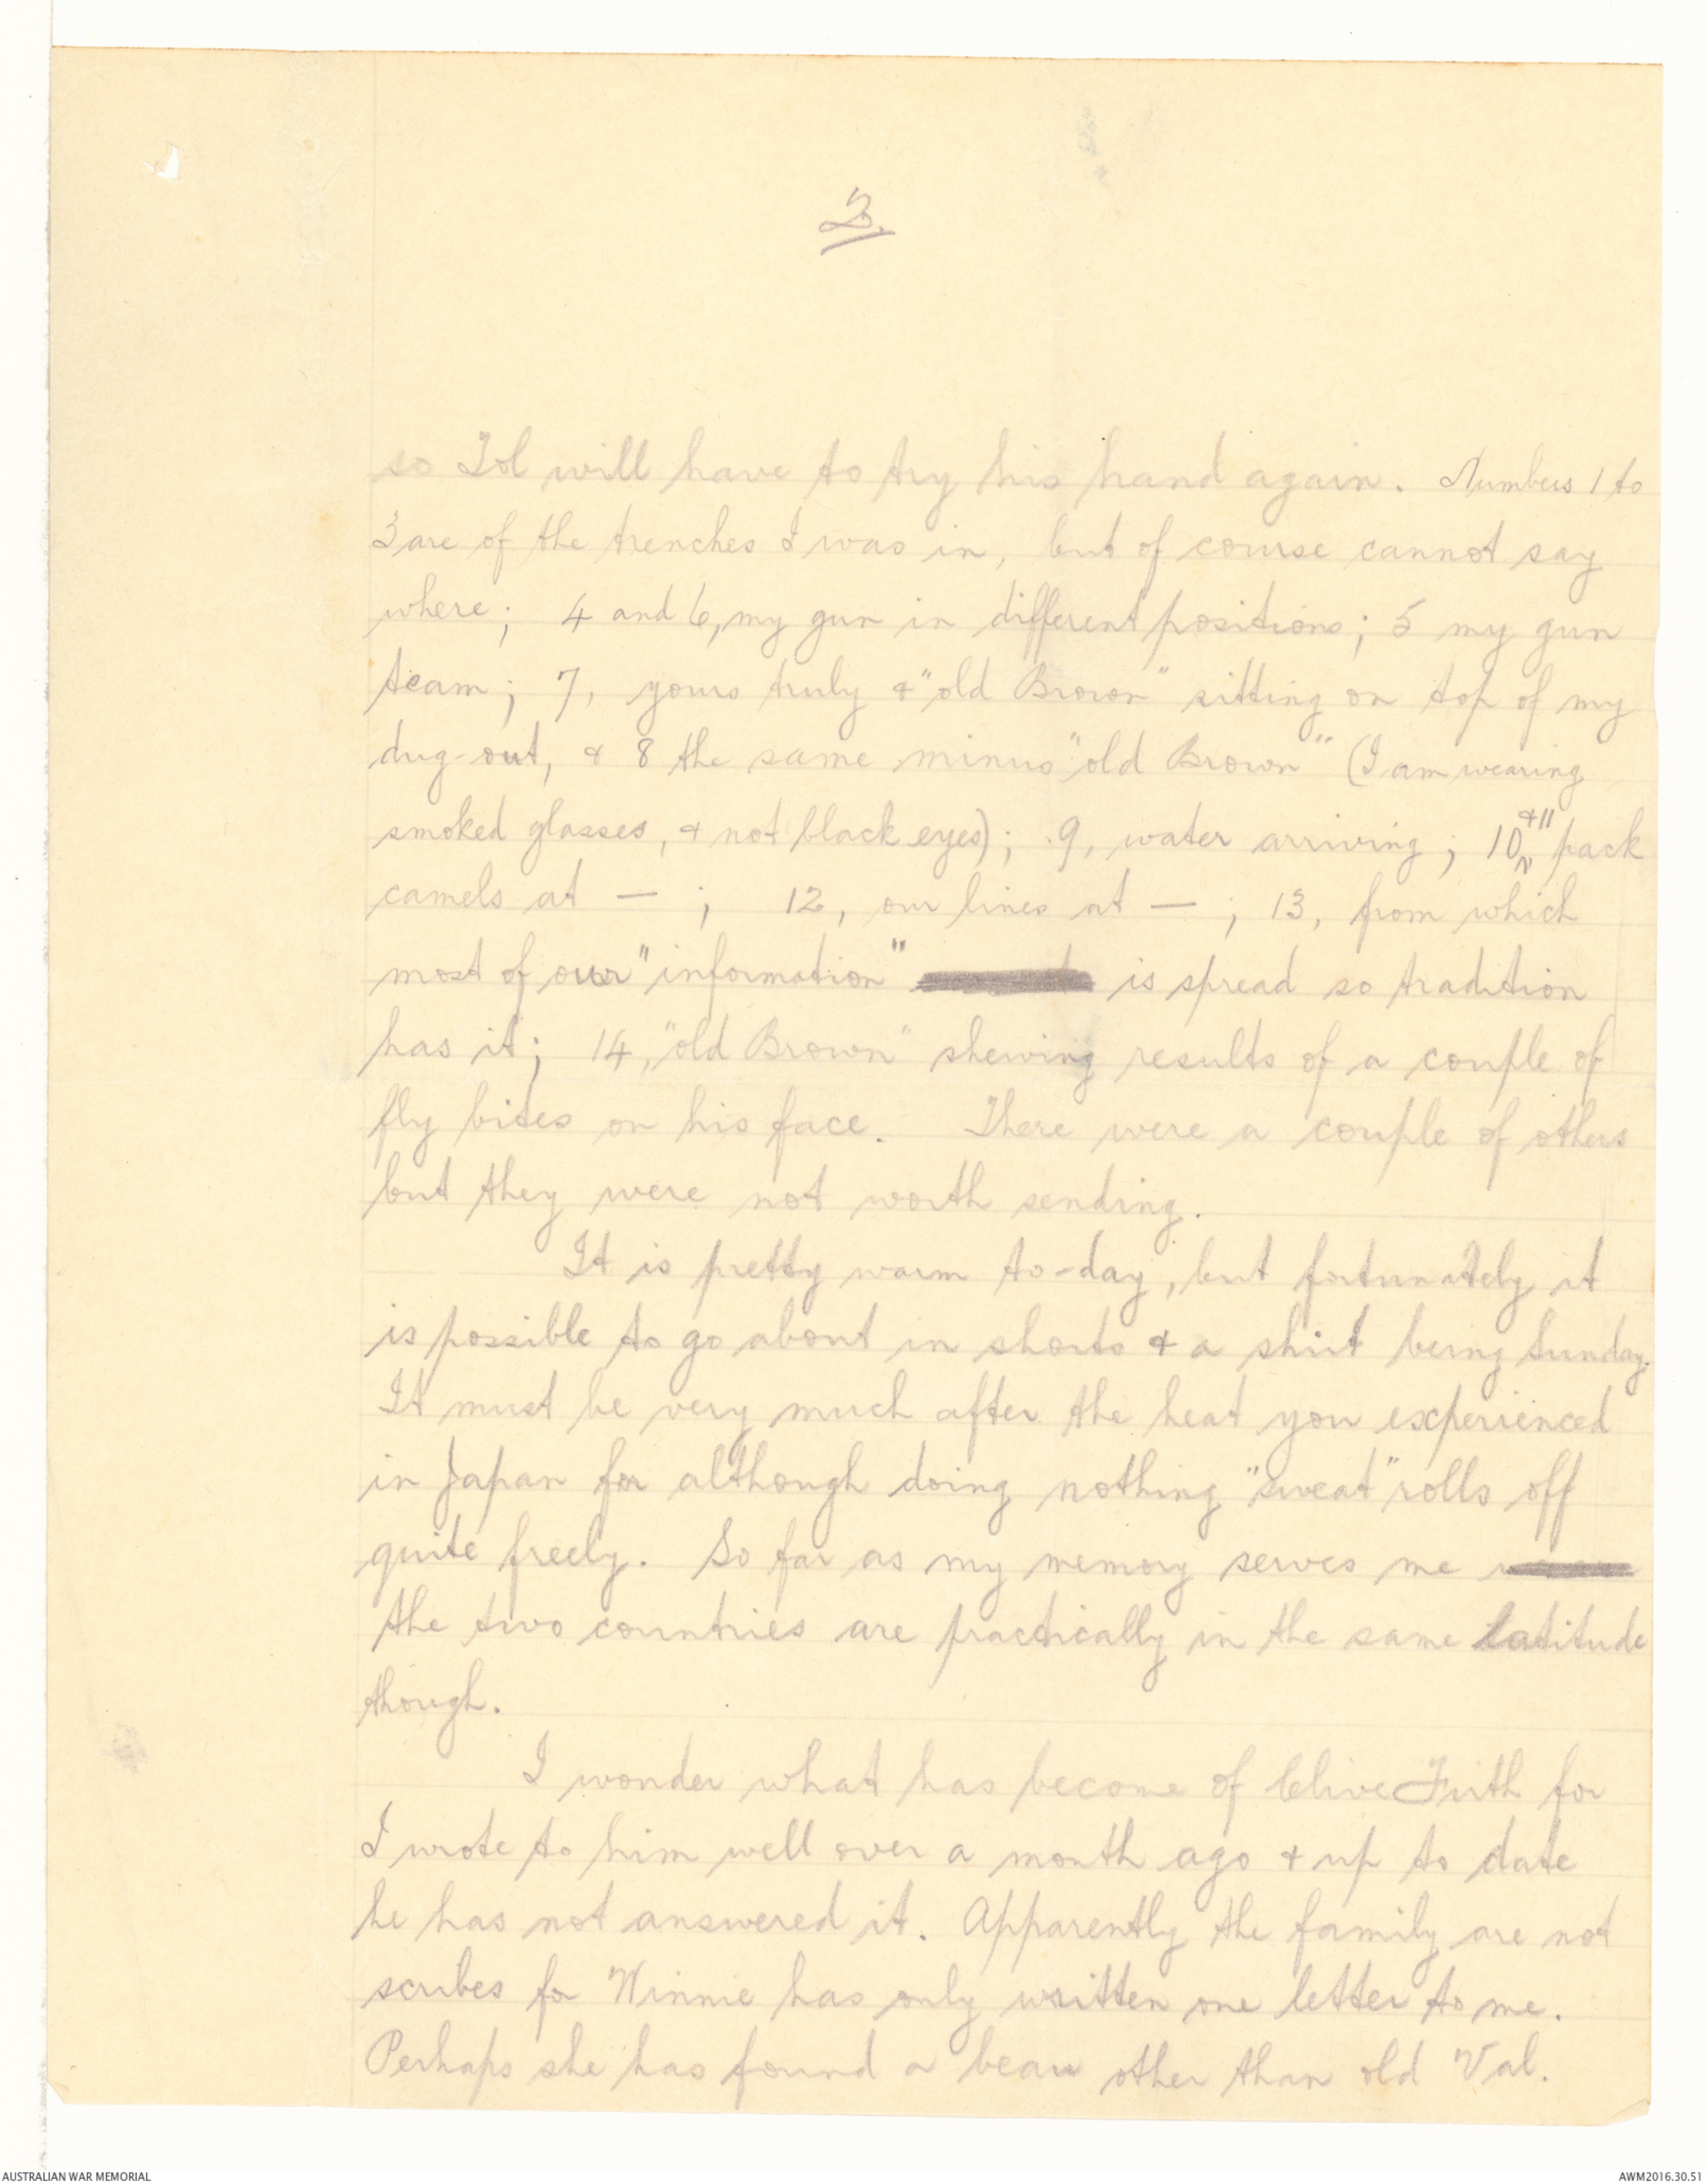 2.
so Tol will have to try his hand again. Numbers 1 to
3 are of the trenches I was in, but of course cannot say
where; 4 and 6, my gun in different positions; 5 my gun
team; 7, yours truly & "old Brown" sitting on top of my
dug-out, & 8 the same minus "old Brown" (I am wearing
smoked glasses, & not black eyes); 9, water arriving; 10 & 11 pack
camels at — ; 12, our lines at — ; 13, from which
most of our "information" is spread so tradition
has it; 14, "old Brown" shewing results of a couple of
fly bites on his face. There were a couple of others
but they were not worth sending.
It is pretty warm to-day, but fortunately it
is possible to go about in shorts & a shirt being Sunday.
It must be very much after the heat you experienced
in Japan for although doing nothing "sweat" rolls off
quite freely. So far as my memory serves me
the two countries are practically in the same latitude
though.
I wonder what has become of Clive Firth for
I wrote to him well over a month ago & up to date
he has not answered it. Apparently the family are not
scribes for Winnie has only written one letter to me.
Perhaps she has found a beau other than old Val.
AUSTRALIAN WAR MEMORIAL
AWM2016.30.51